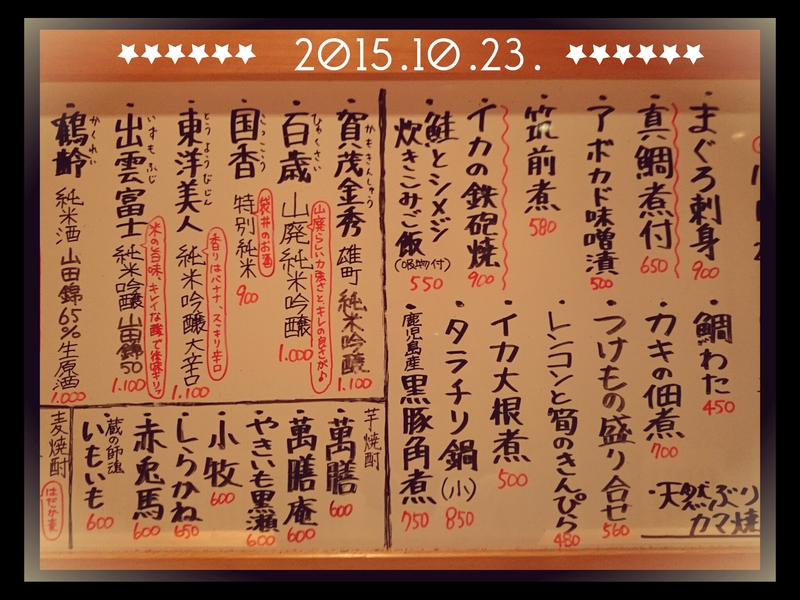 2015.10.23.
まぐろ刺身 900
真鯛煮付 650
アボカド味噌漬 500
筑前煮 580
イカの鉄砲焼 900
鮭とシメジ
炊きこみご飯
(吸物付)
550
鯛わた 450
カキの佃煮 700
つけもの盛り合せ 560
レンコンと筍のきんぴら 480
イカ大根煮 500
タラチリ鍋(小) 850
鹿児島産黒豚角煮 750
・天然ぶり
カマ焼
賀茂金秀 雄町 純米吟醸 1.100
かもきんしゅう
百歳 山廃純米吟醸 1.000
ひゃくさい
山廃らしい力強さとキレの良さが♪
国香 特別純米 900
こっこう
袋井のお酒
東洋美人 純米吟醸大辛口 1.100
とうようびじん
香りはバナナ、スッキリ辛口
出雲富士 純米吟醸 山田錦50 1.100
いずもふじ
米の旨味、キレイな酸で後味キリッ
鶴齢 純米酒 山田錦65% 生原酒 1.000
かくれい
芋焼酎
萬膳 600
萬膳庵 600
やきいも黒瀬 600
小牧 600
しらかね 650
赤兎馬 600
蔵の師魂
いもいも 600
麦焼酎
はだか麦